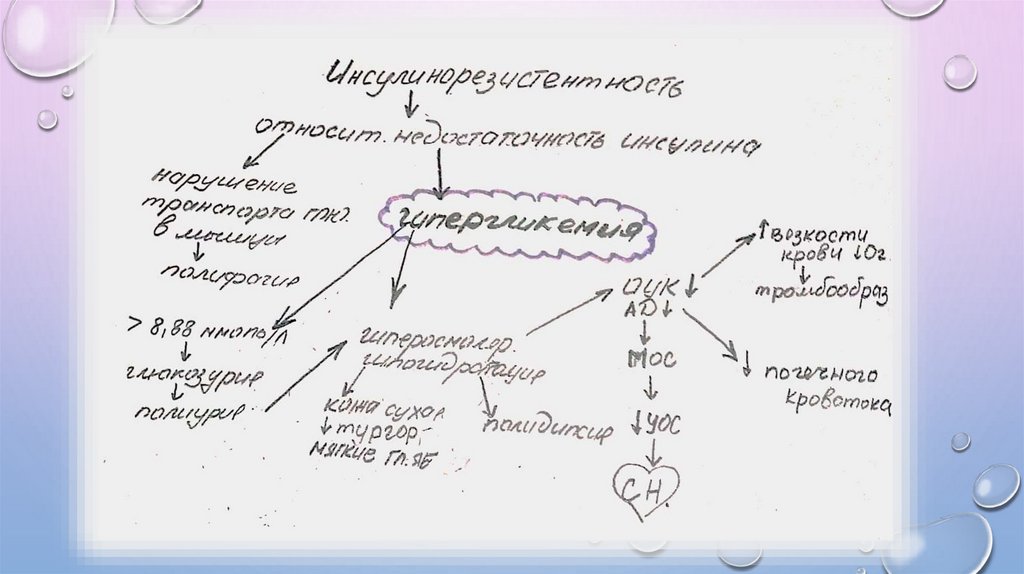 Инсулинорезистентность
относит. недостаточность инсулина
нарушение
транспорта глю.
в мышцы
полифагия
гипергликемия
> 8,88 ммоль/л
глюкозурия
полиурия
гиперосмоляр.
гипогидротация
кожа сухая
↓ тургор,
мягкие гл. яб
полидипсия
ОЦК ↓
АД ↓
МОС
↓ УОС
СН.
↑ вязкости
крови ↓О2
тромбообраз
↓ почечного
кровотока